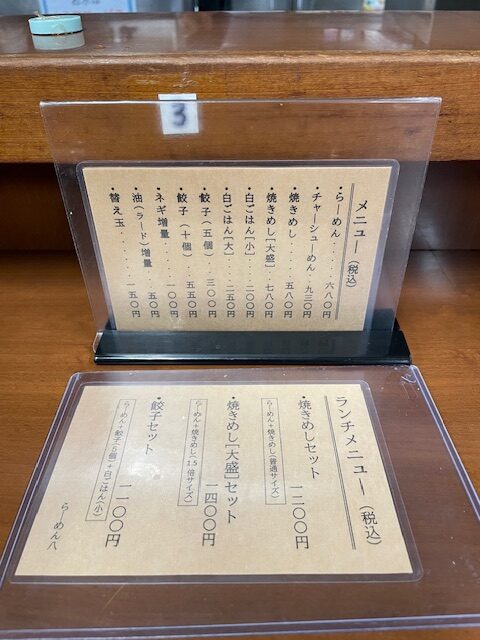 3
メニュー(税込)
・らーめん......六八〇円
・チャーシューめん..九三〇円
・焼きめし......五八〇円
・焼きめし[大盛]...七八〇円
・白ごはん[小]....二〇〇円
・白ごはん[大]....二五〇円
・餃子(五個)....三〇〇円
・餃子(十個)....五五〇円
・ネギ増量......一〇〇円
・油(ラード)増量...五〇円
・替え玉.......一五〇円
ランチメニュー(税込)
・焼きめしセット
一二〇〇円
らーめん+焼きめし(普通サイズ)
・焼きめし[大盛]セット
一四〇〇円
らーめん+焼きめし(1.5倍サイズ)
・餃子セット
一一〇〇円
らーめん+餃子(5個)+白ごはん(小)
らーめん八